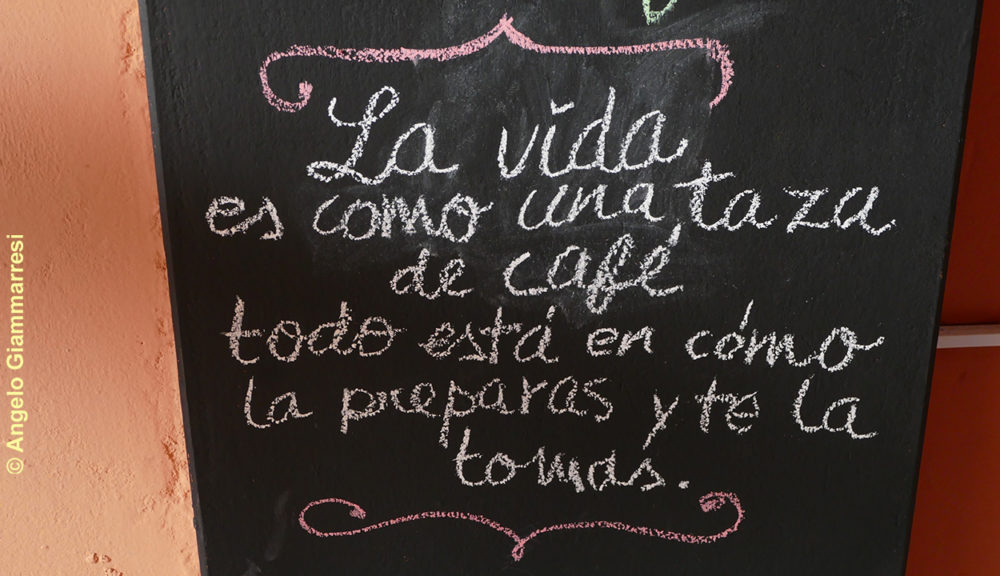 La vida
es como una taza
de café
todo está en cómo
la preparas y te la
tomas.
© Angelo Giammarresi